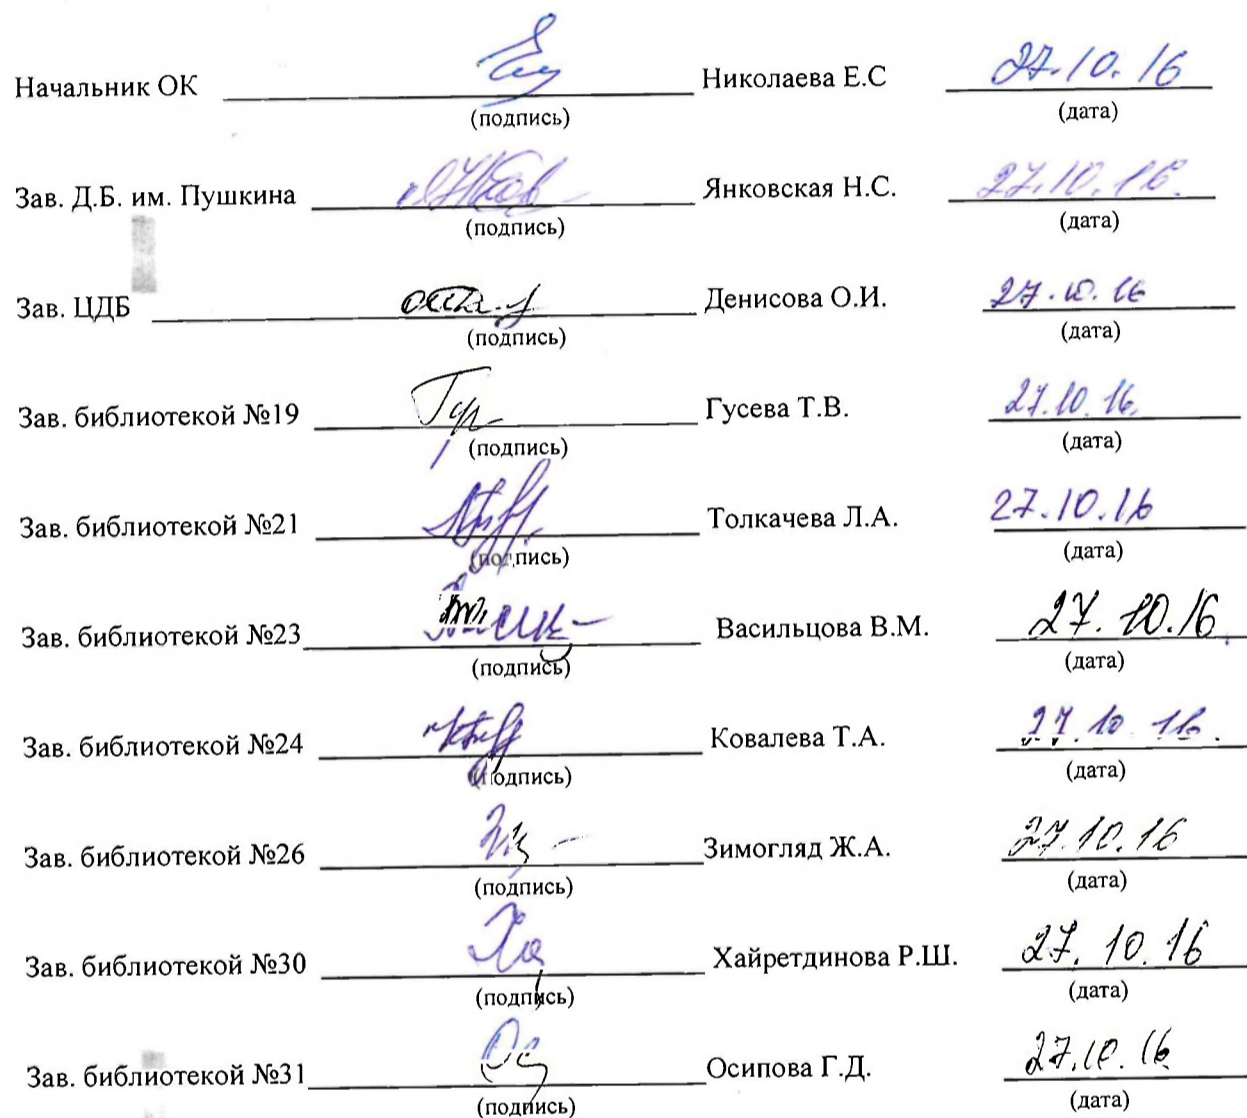 Начальник ОК Николаева Е.С 27.10.16
(подпись) (дата)
Зав. Д.Б. им. Пушкина Янковская Н.С. 27.10.16.
(подпись) (дата)
Зав. ЦДБ Денисова О.И. 27.10.16
(подпись) (дата)
Зав. библиотекой №19 Гусева Т.В. 27.10.16.
(подпись) (дата)
Зав. библиотекой №21 Толкачева Л.А. 27.10.16
(подпись) (дата)
Зав. библиотекой №23 Васильцова В.М. 27.10.16
(подпись) (дата)
Зав. библиотекой №24 Ковалева Т.А. 27.10.16.
(подпись) (дата)
Зав. библиотекой №26 Зимогляд Ж.А. 27.10.16
(подпись) (дата)
Зав. библиотекой №30 Хайретдинова Р.Ш. 27.10.16
(подпись) (дата)
Зав. библиотекой №31 Осипова Г.Д. 27.10.16
(подпись) (дата)